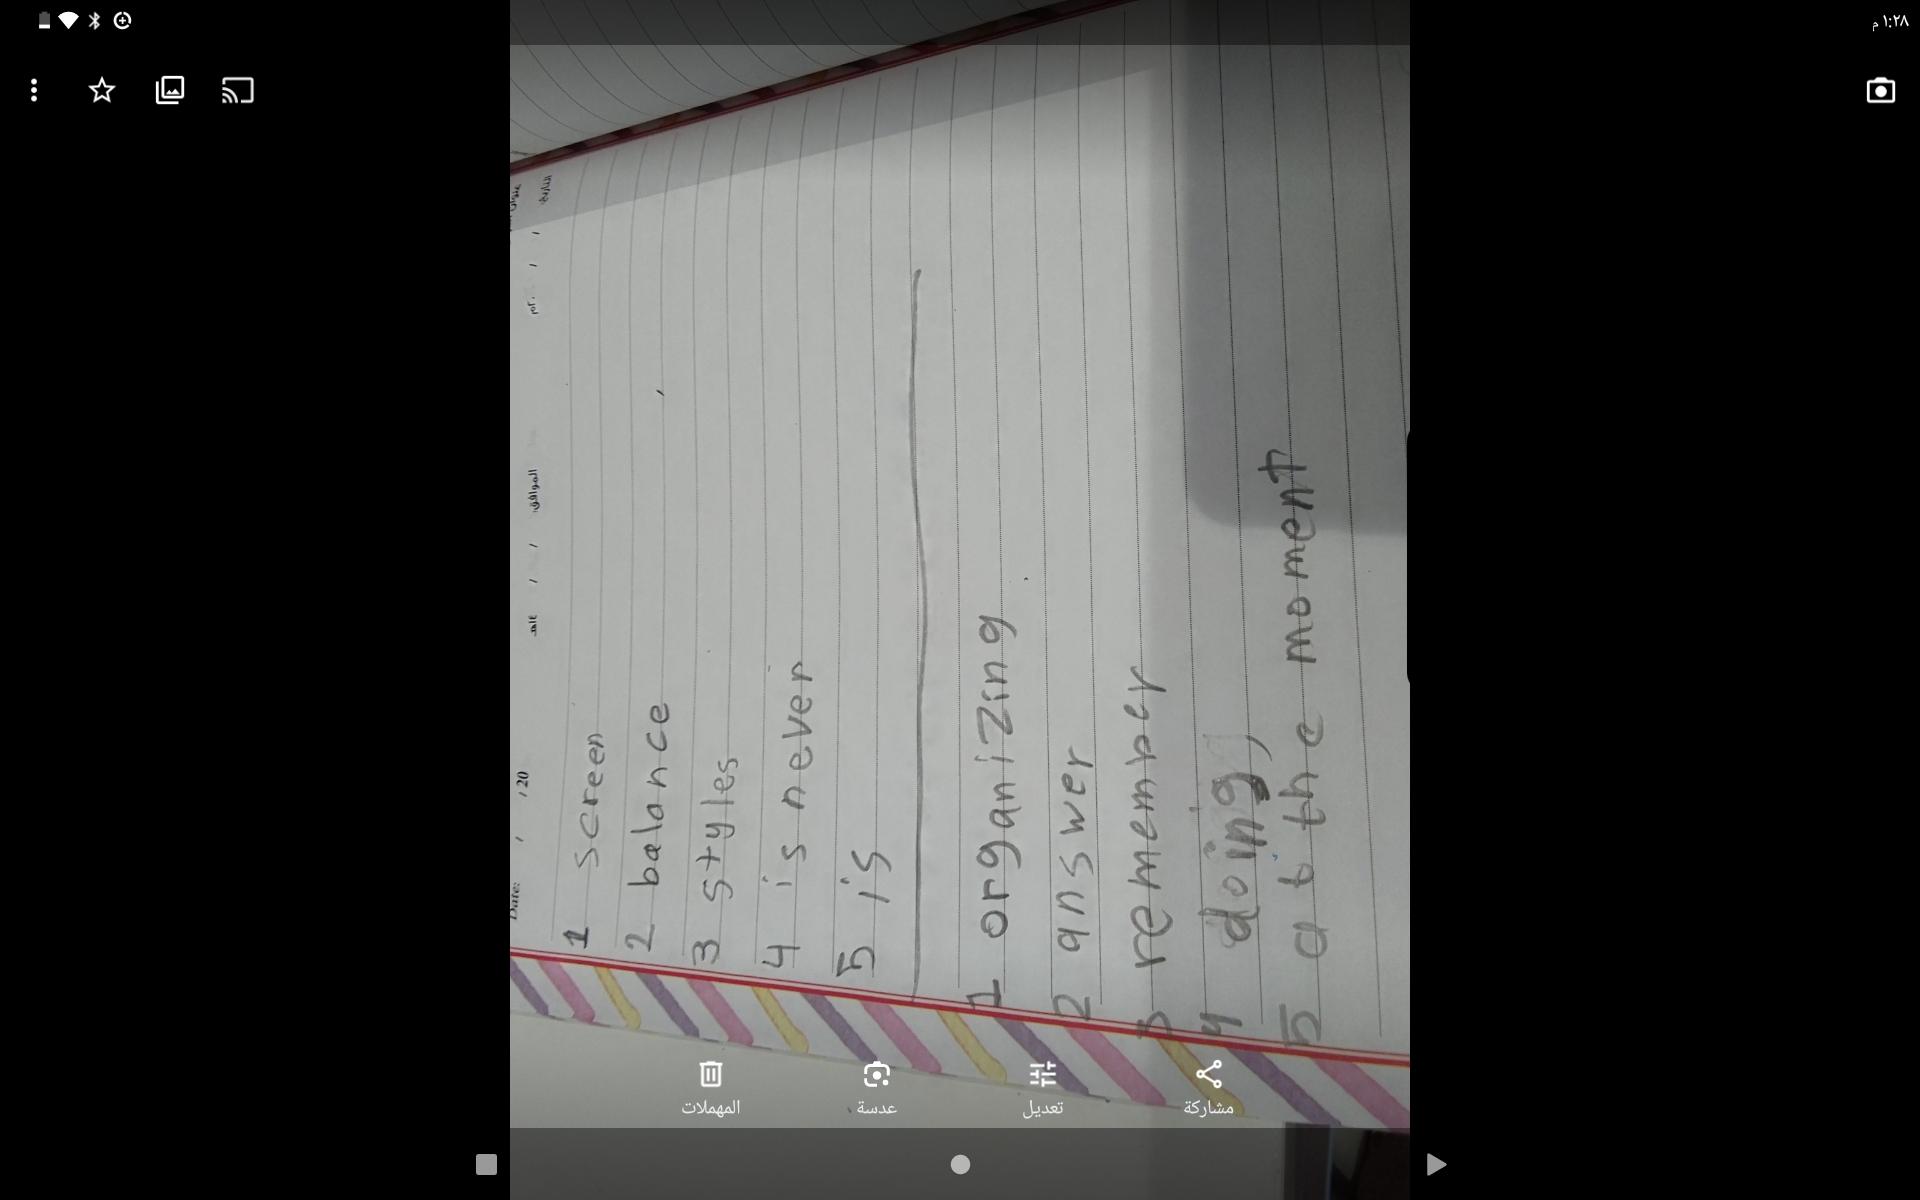 ١:٢٨ م
التاريخ:
/ / م. الموافق: / / هـ
Date: / / 20
1 screen
2 balance
3 styles
4 is never
5 is
1 organizing
2 answer
3 remember
4 doing
5 at the moment
مشاركة
تعديل
عدسة
المهملات